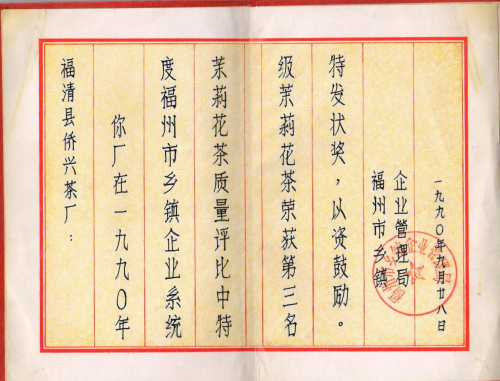 福清县侨兴茶厂：
你厂在一九九〇年
度福州市乡镇企业系统
茉莉花茶质量评比中特
级茉莉花茶荣获第三名
特发状奖，以资鼓励。
福州市乡镇
企业管理局
一九九〇年九月廿八日